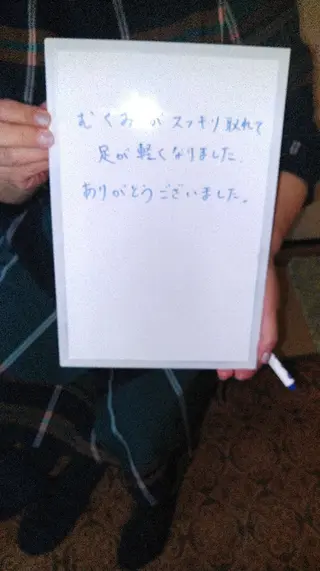 むくみがスッキリ取れて
足が軽くなりました.
ありがとうございました。